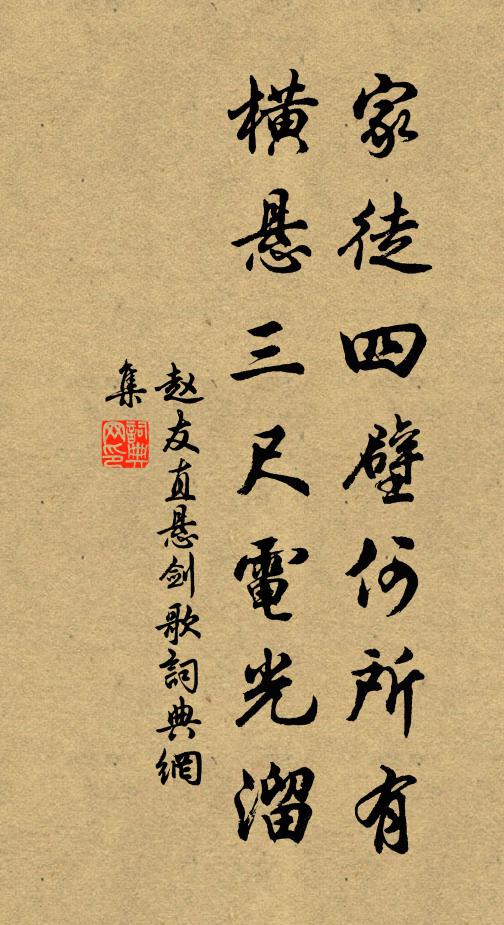 家徒四壁何所有
橫悬三尺電光溜
赵友直悬劍歌詞典網
集
詞典
网印